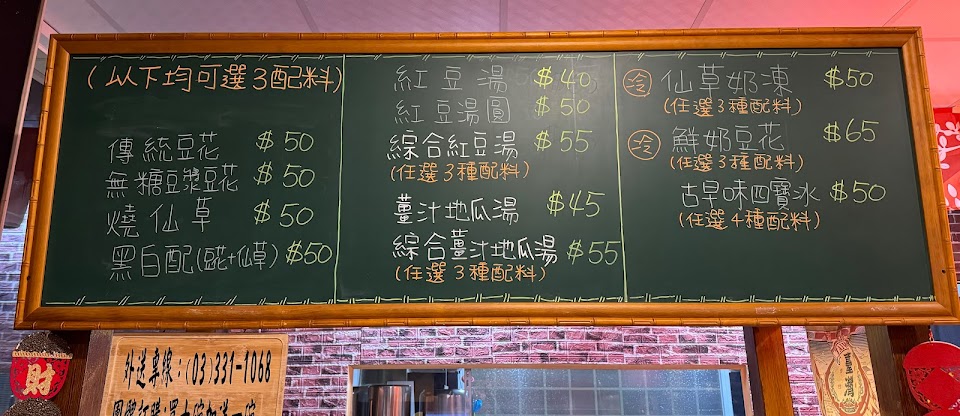 (以下均可選3配料)
傳統豆花 $50
無糖豆漿豆花 $50
燒仙草 $50
黑白配(豆花+仙草) $50
紅豆湯 $40
紅豆湯圓 $50
綜合紅豆湯 $55
(任選3種配料)
薑汁地瓜湯 $45
綜合薑汁地瓜湯 $55
(任選3種配料)
冷 仙草奶凍 $50
(任選3種配料)
冷 鮮奶豆花 $65
(任選3種配料)
古早味四寶冰 $50
(任選4種配料)
財
外送專線:(03)331-1068
臺灣